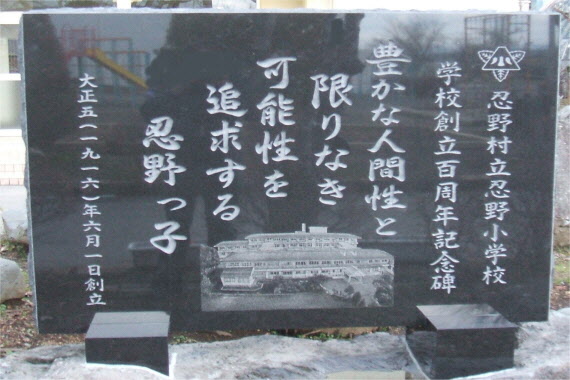 忍野村立忍野小学校
学校創立百周年記念碑
豊かな人間性と
限りなき
可能性を
追求する
忍野っ子
大正五(一九一六)年六月一日創立
小